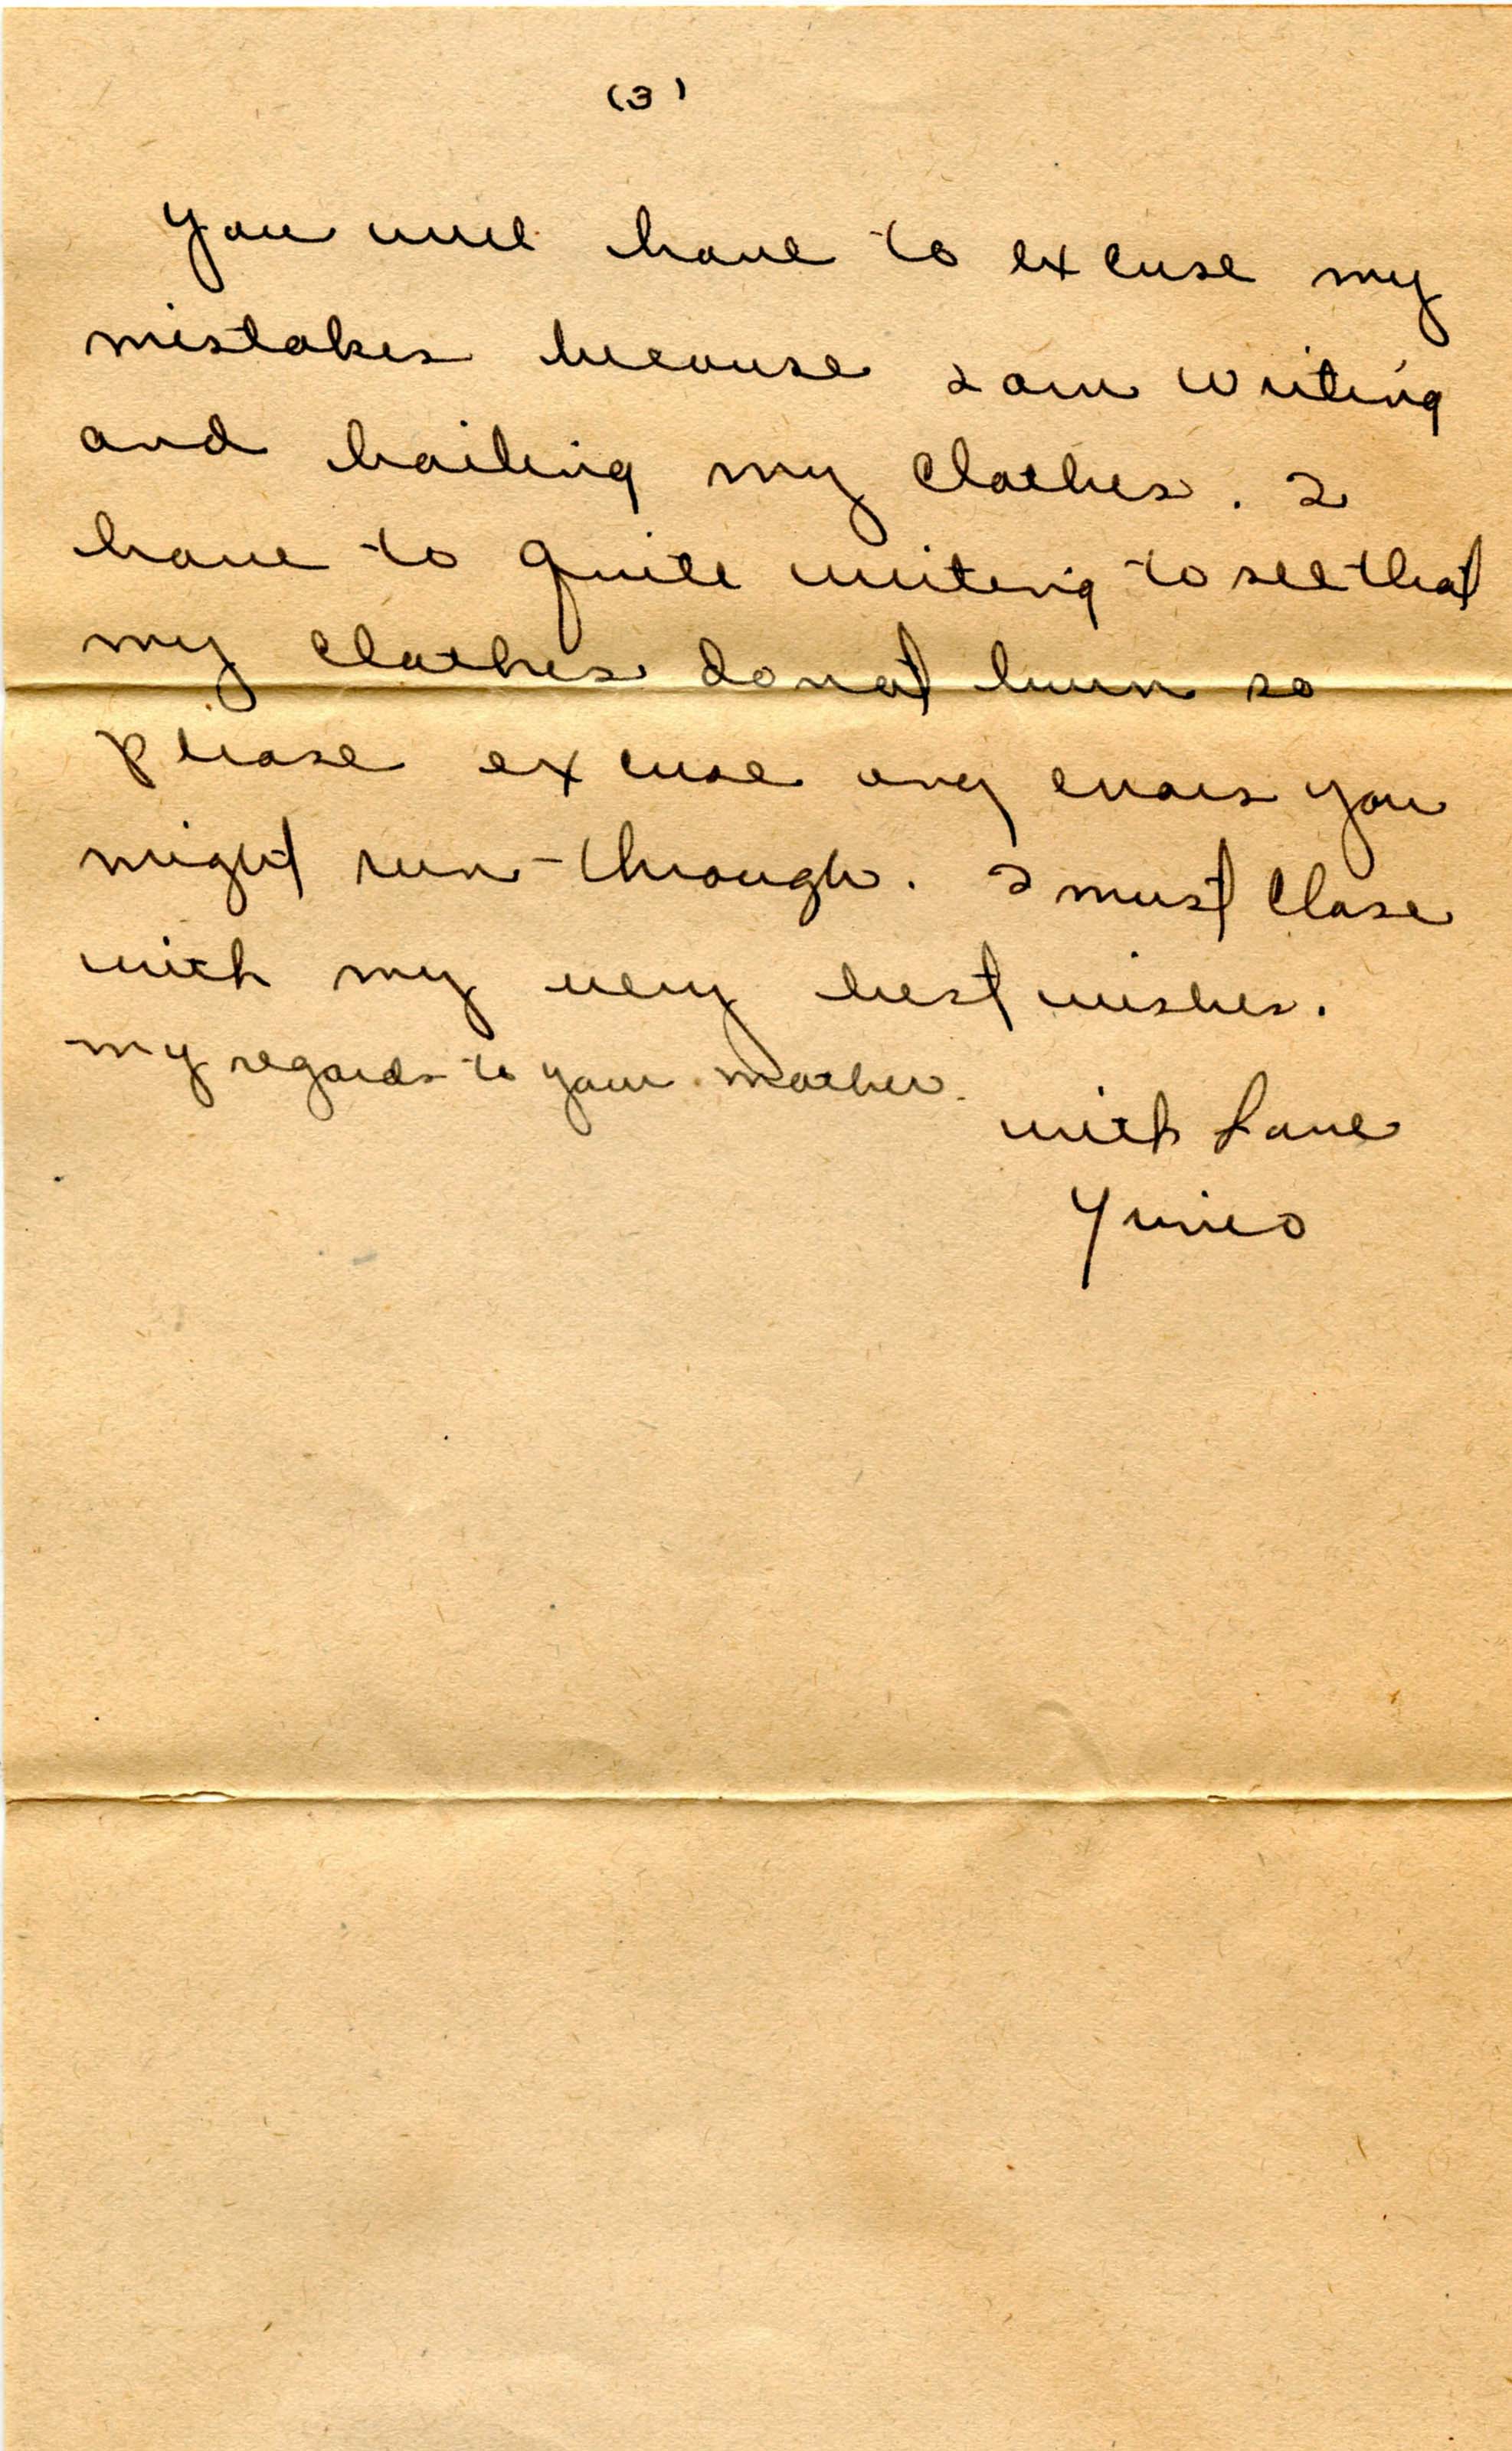 (3)
You will have to excuse my
mistakes because I am writing
and boiling my clothes. I
have to quite writing to see that
my clothes do not burn so
please excuse any errors you
might run through. I must close
with my very best wishes.
My regards to your mother.
With Love